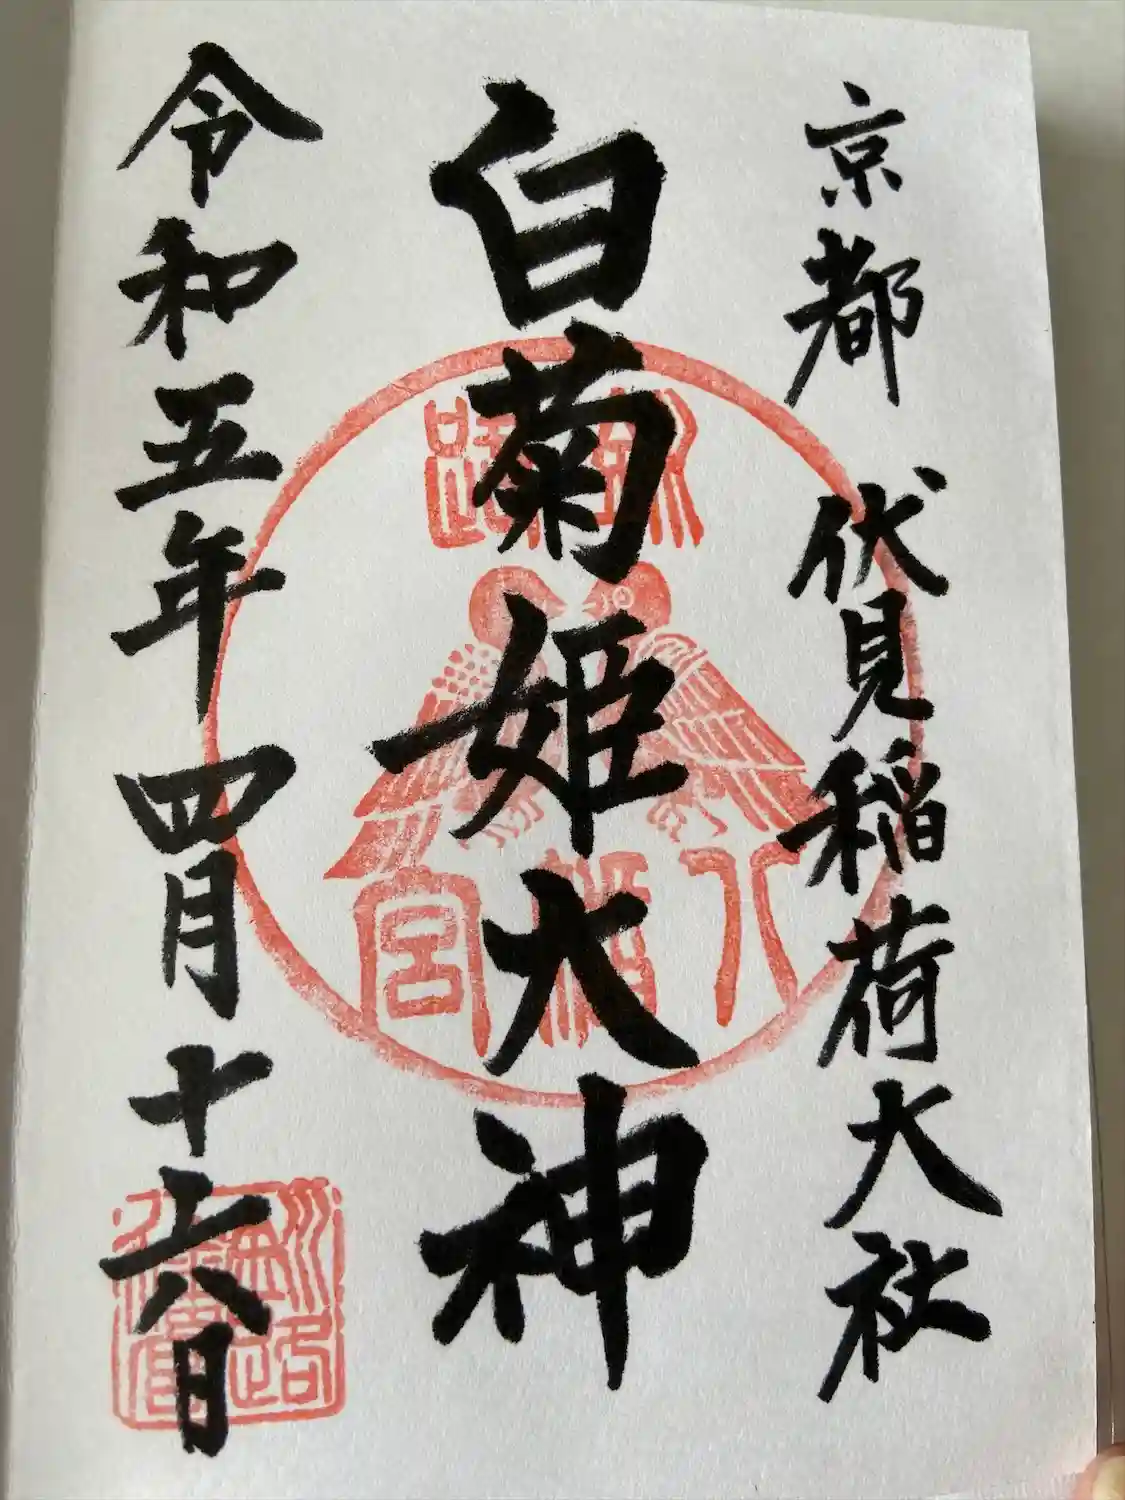 京都 伏見稲荷大社
白菊姫大神
令和五年四月十六日
釧路
八幡宮